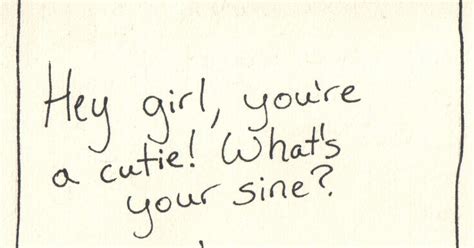 Hey girl, you're
a cutie! What's
your sine?